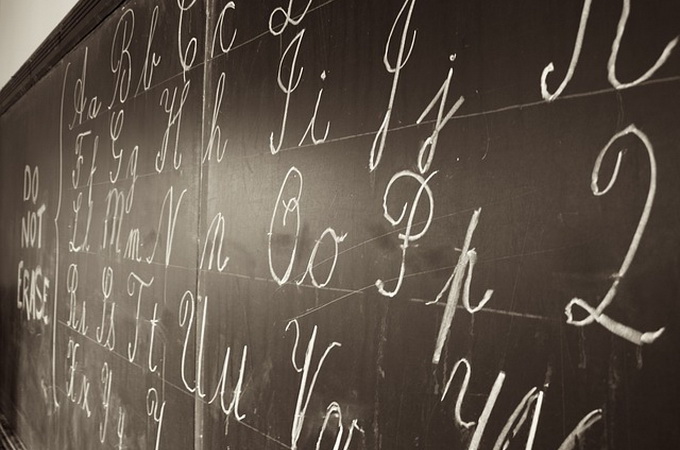 DO
NOT
ERASE
Aa Bb Cc D
Ff Gg Hh Ii Jj K
Ll Mm Nn Oo Pp Q
Rr Ss Tt Uu V
Xx Yy